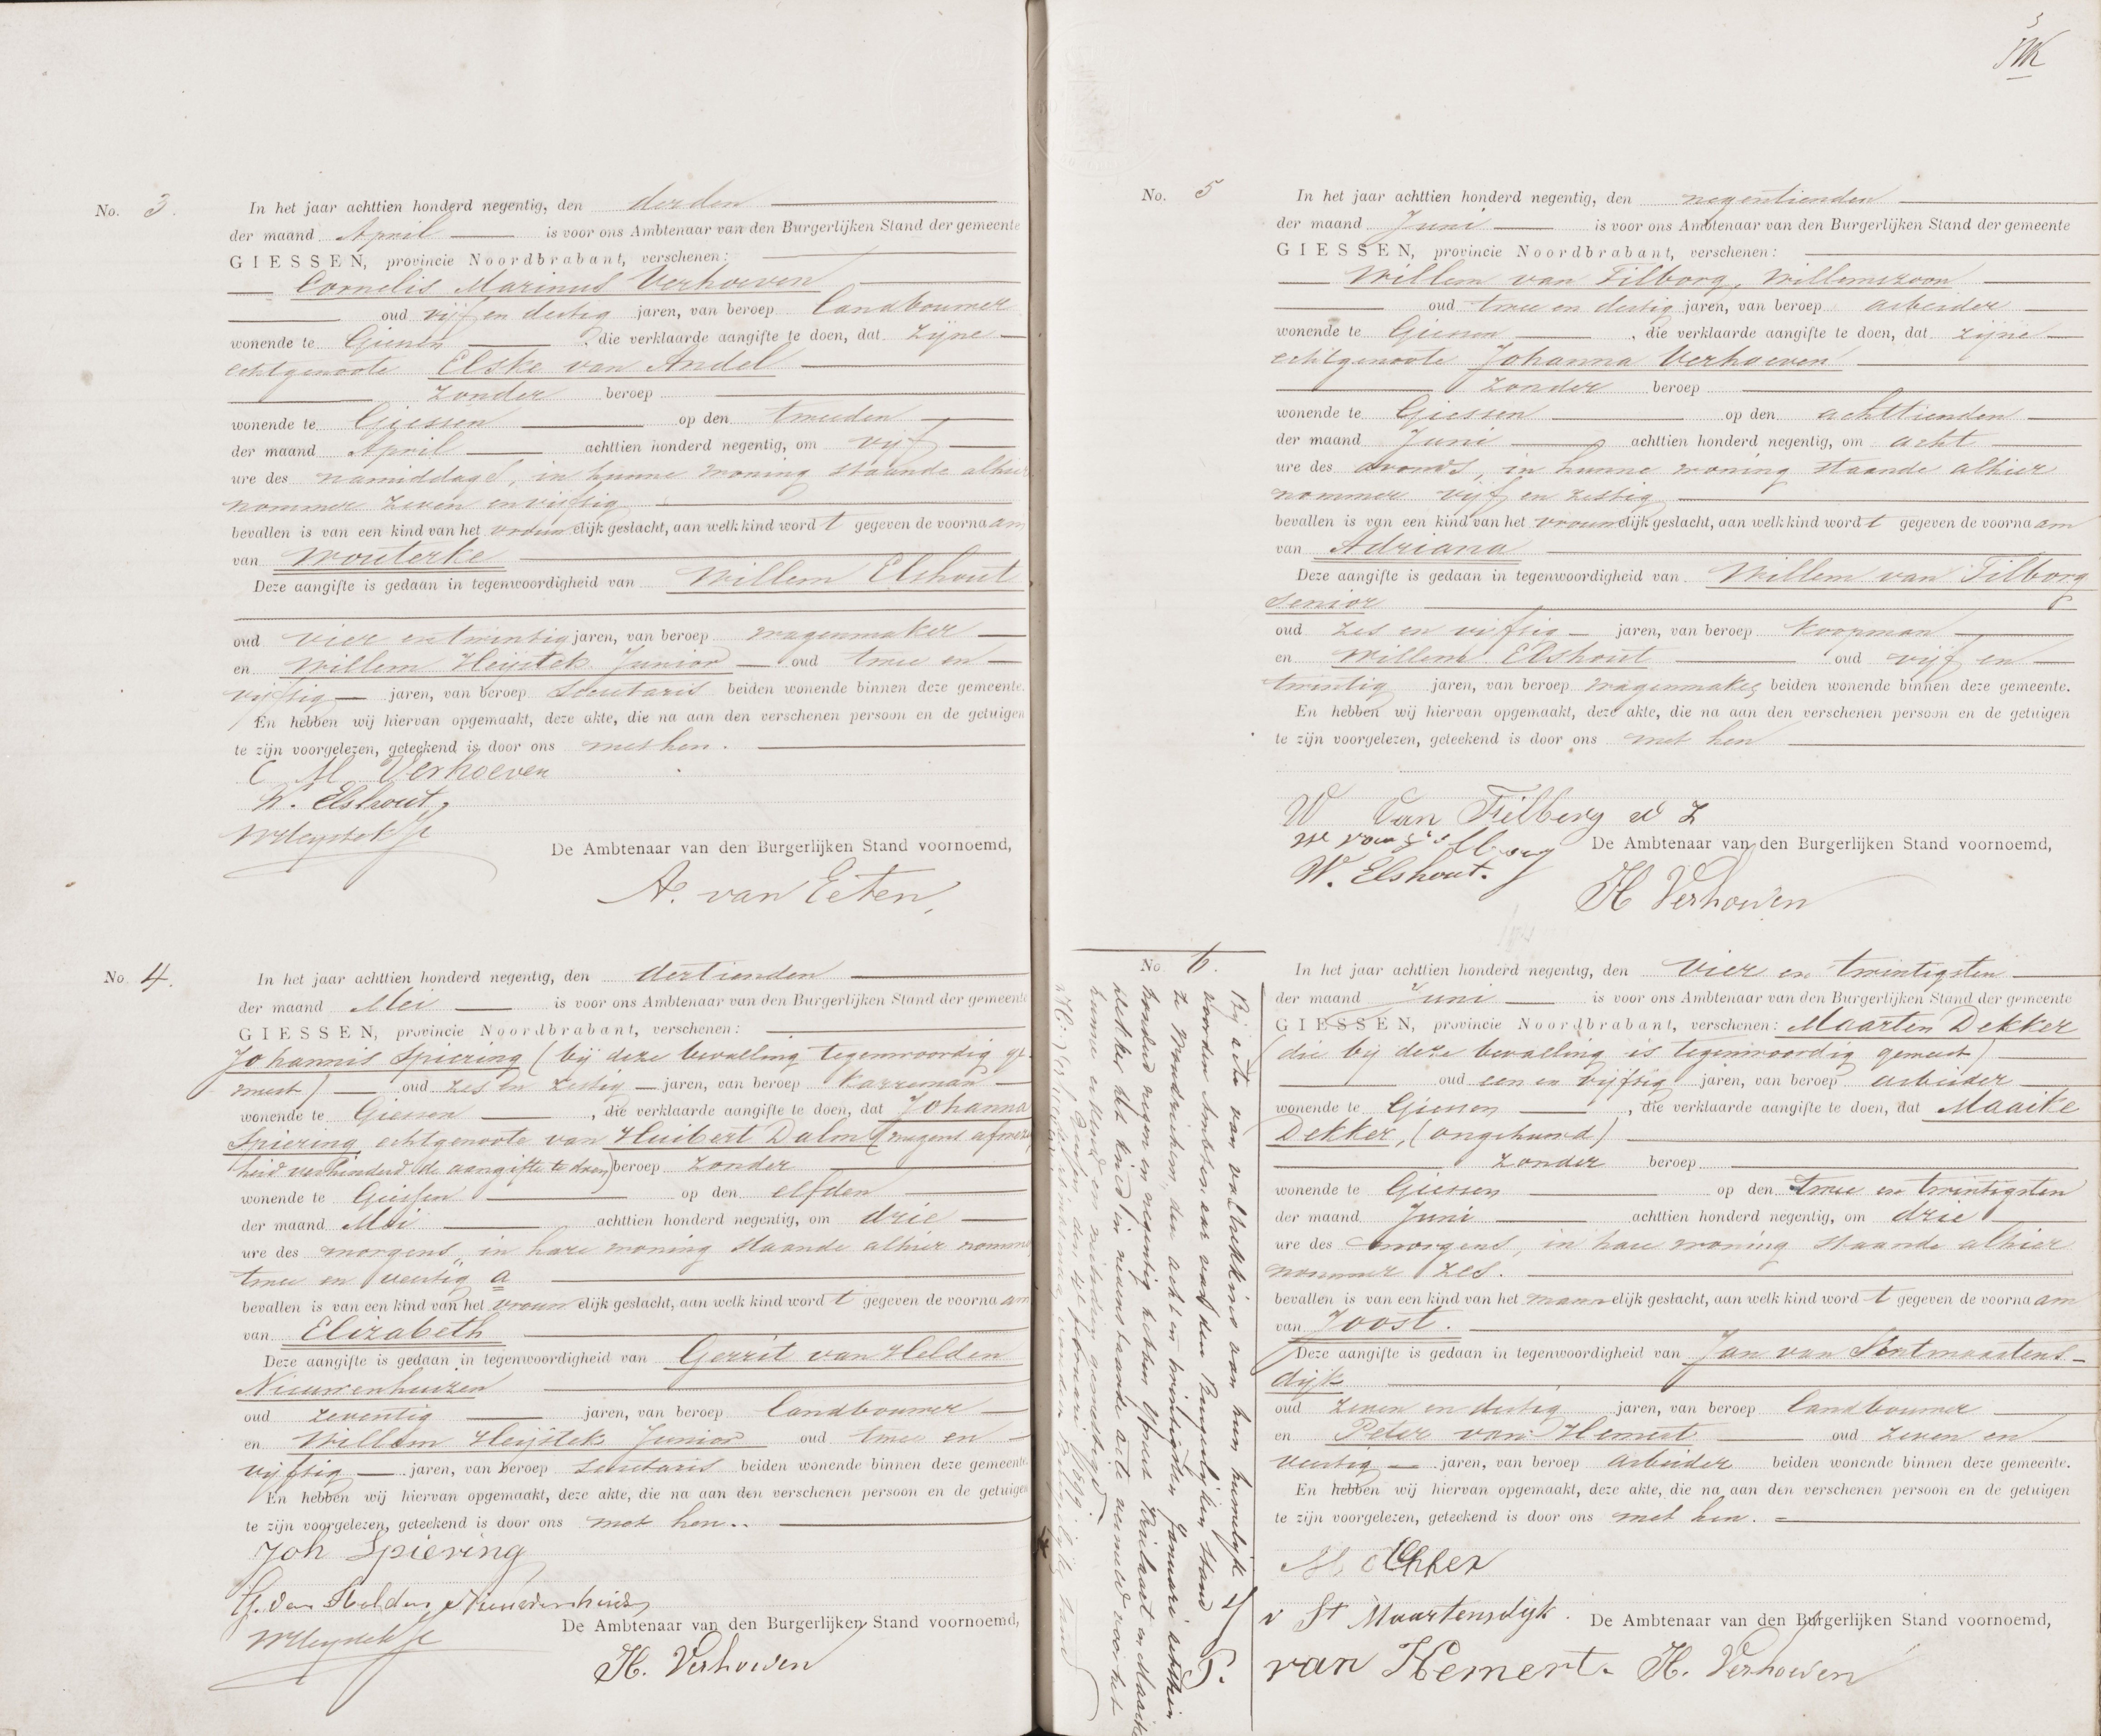 No. 3.
In het jaar achttien honderd negentig, den derden
der maand April is voor ons Ambtenaar van den Burgerlijken Stand der gemeente
GIESSEN, provincie Noordbrabant, verschenen:
Cornelis Marinus Verhoeven
oud vijf en dertig jaren, van beroep landbouwer
wonende te Giessen, die verklaarde aangifte te doen, dat zijne
echtgenoote Elske van Andel
zonder beroep
wonende te Giessen op den tweeden
der maand April achttien honderd negentig, om vijf
ure des namiddags, in hunne woning staande alhier
nommer zeven en vijftig
bevallen is van een kind van het vrouwelijk geslacht, aan welk kind wordt gegeven de voornaam
van Wouterke
Deze aangifte is gedaan in tegenwoordigheid van Willem Elshout
oud vier en twintig jaren, van beroep wagenmaker
en Willem Heijstek Junior oud twee en
vijftig jaren, van beroep secretaris beiden wonende binnen deze gemeente.
En hebben wij hiervan opgemaakt, deze akte, die na aan den verschenen persoon en de getuigen
te zijn voorgelezen, geteekend is door ons met hen.
C M Verhoeven
W. Elshout
WHeystek Jr
De Ambtenaar van den Burgerlijken Stand voornoemd,
A. van Eeten,
No. 4.
In het jaar achttien honderd negentig, den dertienden
der maand Mei is voor ons Ambtenaar van den Burgerlijken Stand der gemeente
GIESSEN, provincie Noordbrabant, verschenen:
Johannis Spiering (bij deze bevalling tegenwoordig ge
weest) oud zes en zestig jaren, van beroep karreman
wonende te Giessen, die verklaarde aangifte te doen, dat Johanna
Spiering, echtgenoote van Huibert Dalm (wegens afwezig
heid verhinderd de aangifte te doen) beroep zonder
wonende te Giessen op den elfden
der maand Mei achttien honderd negentig, om drie
ure des morgens, in hare woning staande alhier nommer
twee en veertig a
bevallen is van een kind van het vrouwelijk geslacht, aan welk kind wordt gegeven de voornaam
van Elizabeth
Deze aangifte is gedaan in tegenwoordigheid van Gerrit van Helden
Nieuwenhuizen
oud zeventig jaren, van beroep landbouwer
en Willem Heijstek Junior oud twee en
vijftig jaren, van beroep secretaris beiden wonende binnen deze gemeente.
En hebben wij hiervan opgemaakt, deze akte, die na aan den verschenen persoon en de getuigen
te zijn voorgelezen, geteekend is door ons met hen.
Joh Spiering
G. van Helden Nieuwenhuizen
WHeystek Jr
De Ambtenaar van den Burgerlijken Stand voornoemd,
H. Verhoeven
No. 5
In het jaar achttien honderd negentig, den negentienden
der maand Juni is voor ons Ambtenaar van den Burgerlijken Stand der gemeente
GIESSEN, provincie Noordbrabant, verschenen:
Willem van Tilborg, Willemszoon
oud twee en dertig jaren, van beroep arbeider
wonende te Giessen, die verklaarde aangifte te doen, dat zijne
echtgenoote Johanna Verhoeven
zonder beroep
wonende te Giessen op den achttienden
der maand Juni achttien honderd negentig, om acht
ure des avonds, in hunne woning staande alhier
nommer vijf en zestig
bevallen is van een kind van het vrouwelijk geslacht, aan welk kind wordt gegeven de voornaam
van Adriana
Deze aangifte is gedaan in tegenwoordigheid van Willem van Tilborg
senior
oud zes en vijftig jaren, van beroep koopman
en Willem Elshout oud vijf en
twintig jaren, van beroep wagenmaker beiden wonende binnen deze gemeente.
En hebben wij hiervan opgemaakt, deze akte, die na aan den verschenen persoon en de getuigen
te zijn voorgelezen, geteekend is door ons met hen
W Van Tilborg W Z
W van Tilborg
W. Elshout.
De Ambtenaar van den Burgerlijken Stand voornoemd,
H Verhoeven
No. 6.
Bij acte van voltrekking van hun huwelijk
voor den Ambtenaar van den Burgerlijken Stand
te Woudrichem, den acht en twintigsten Januari achttien
honderd negen en negentig hebben en Maaike
Dekker het kind in nevenstaande acte vermeld voor het
hunne erkend en
In het jaar achttien honderd negentig, den vier en twintigsten
der maand Juni is voor ons Ambtenaar van den Burgerlijken Stand der gemeente
GIESSEN, provincie Noordbrabant, verschenen: Maarten Dekker
(die bij deze bevalling is tegenwoordig geweest)
oud een en vijftig jaren, van beroep arbeider
wonende te Giessen, die verklaarde aangifte te doen, dat Maaike
Dekker, (ongehuwd)
zonder beroep
wonende te Giessen op den twee en twintigsten
der maand Juni achttien honderd negentig, om drie
ure des morgens, in hare woning staande alhier
nommer zes.
bevallen is van een kind van het mannelijk geslacht, aan welk kind wordt gegeven de voornaam
van Joost.
Deze aangifte is gedaan in tegenwoordigheid van Jan van Sintmaartens-
dijk
oud zeven en dertig jaren, van beroep landbouwer
en Peter van Hemert oud zeven en
veertig jaren, van beroep arbeider beiden wonende binnen deze gemeente.
En hebben wij hiervan opgemaakt, deze akte, die na aan den verschenen persoon en de getuigen
te zijn voorgelezen, geteekend is door ons met hen.
M. dekker
v St Maartensdijk.
De Ambtenaar van den Burgerlijken Stand voornoemd,
van Hemert.
H. Verhoeven